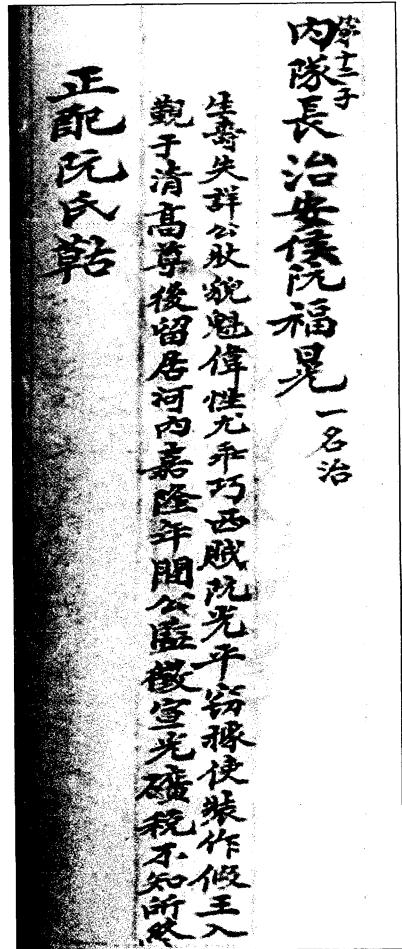 第十二子
內隊長治安侯阮福晃
一名治
生壽失詳公狀貌魁偉性尤乖巧西賊阮光平竊據使裝作假王入
覲于清高尊後留居河內嘉隆年間公監徵宣光礦稅不知所終
正配阮氏